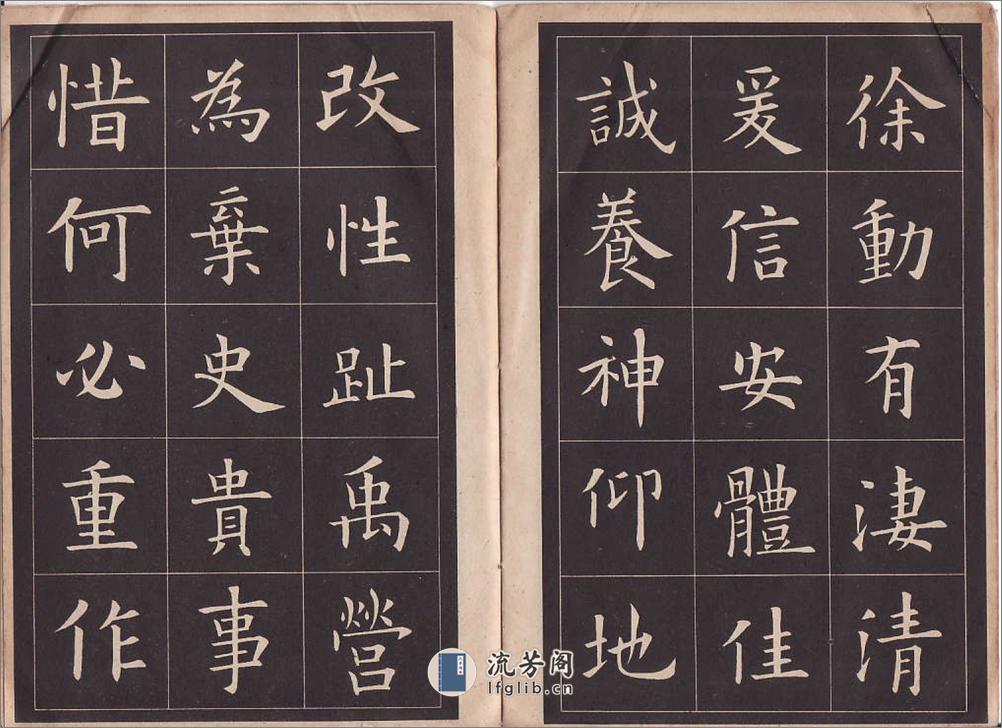 徐動有淒清
爰信安體佳
誠養神仰地
改性趾禹營
為棄史貴事
惜何必重作
流芳阁
lfglib.cn